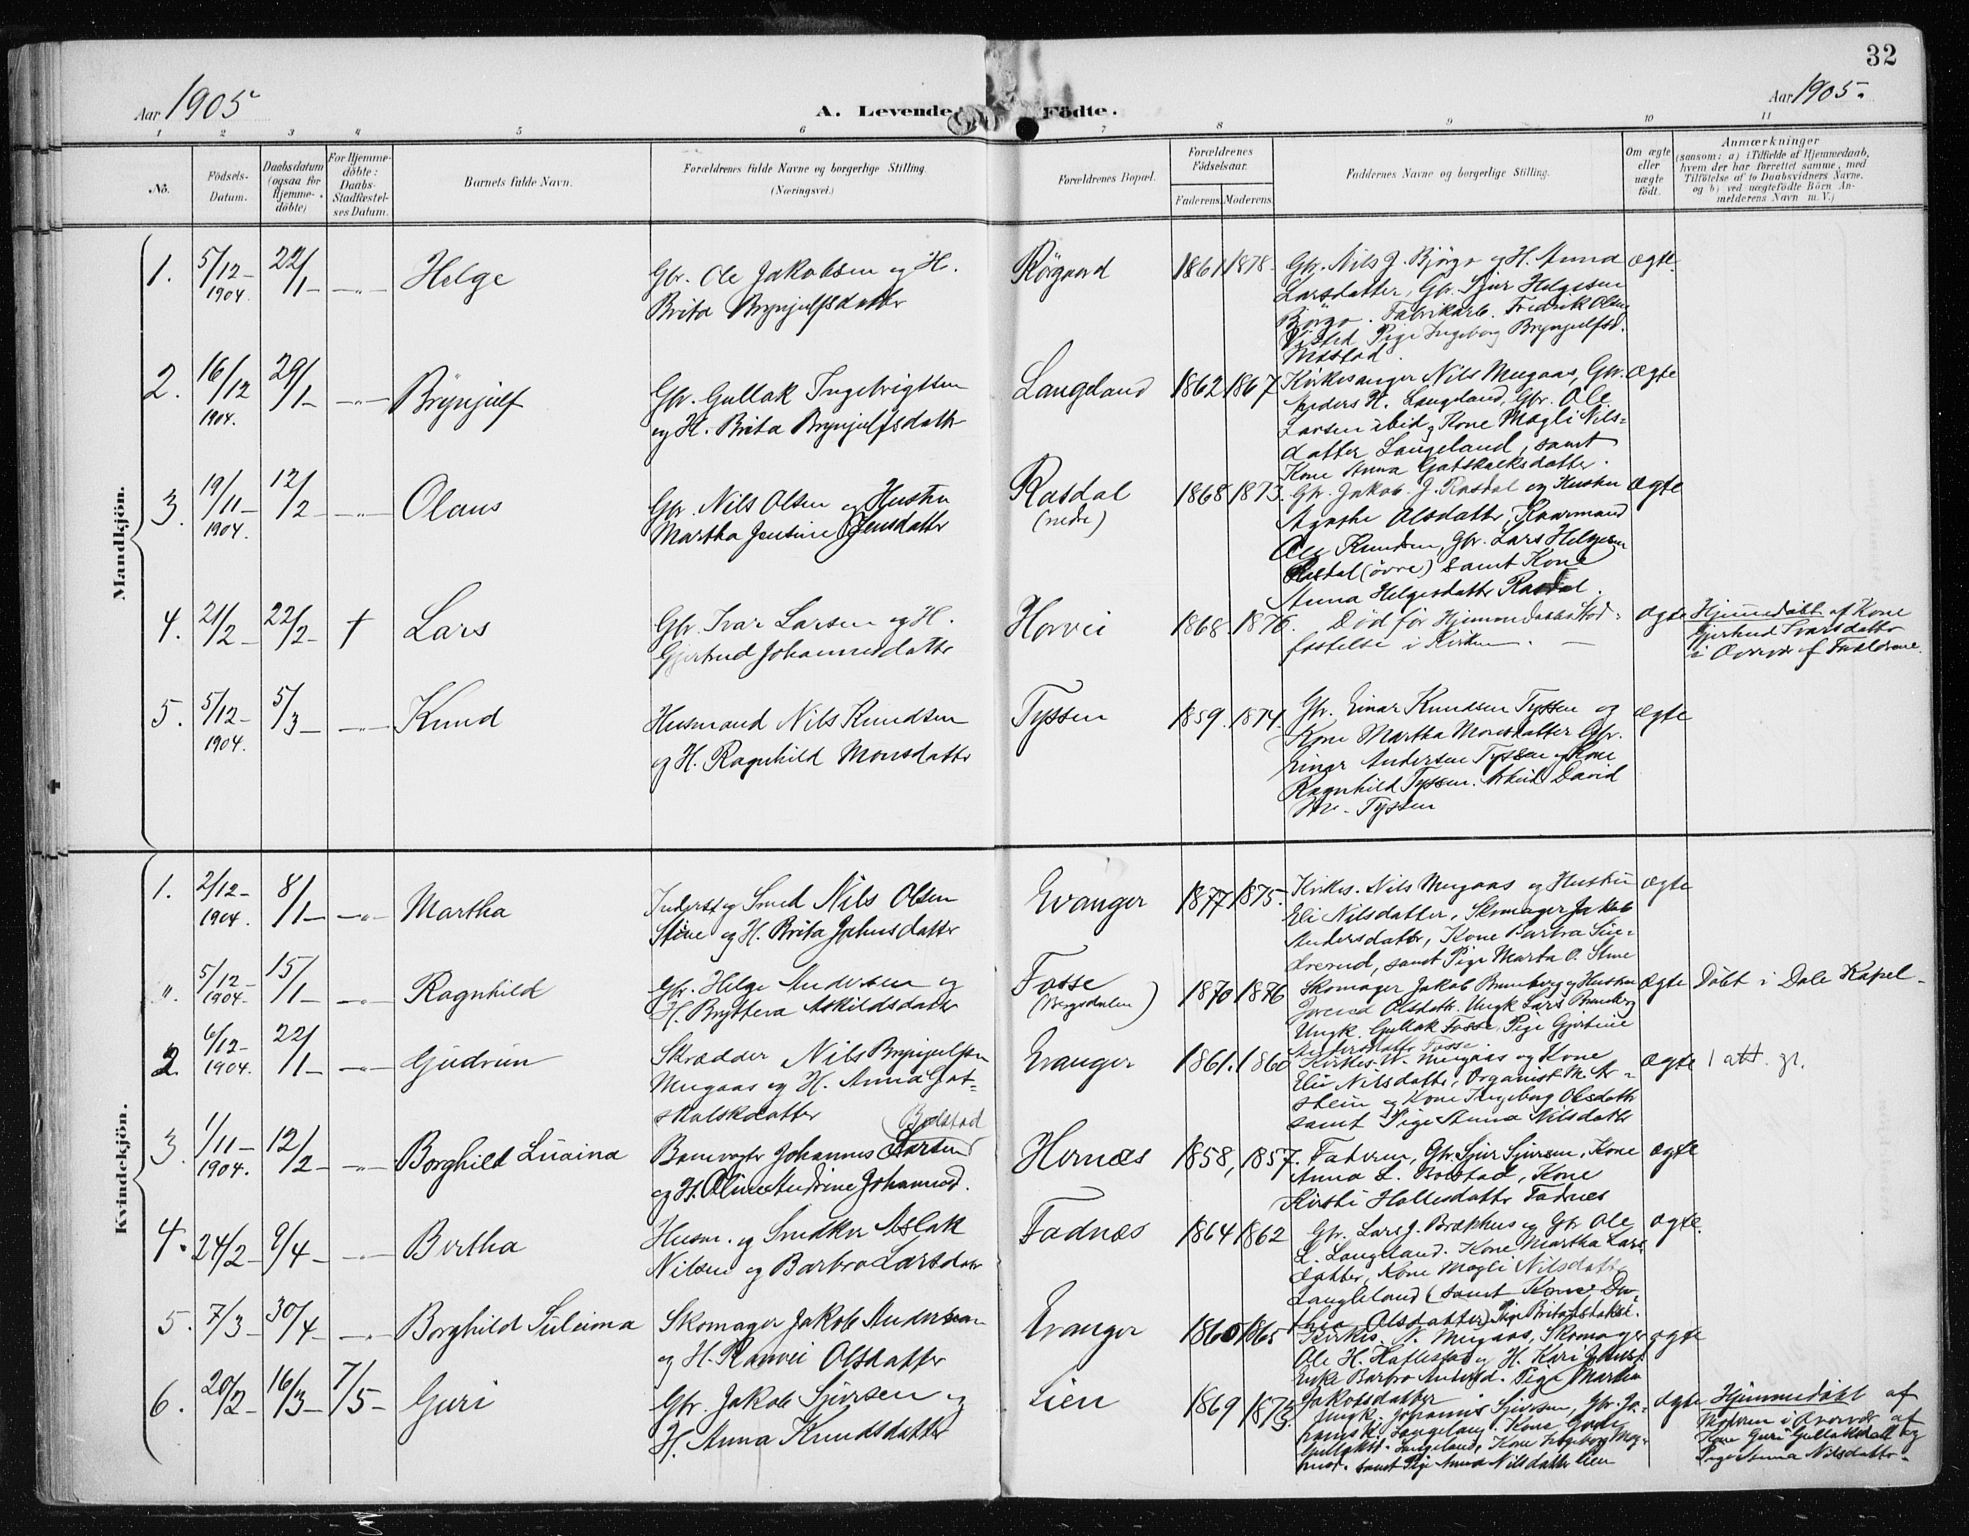 32
Aar 1905
A. Levende Födte.
Aar 1905.
1 2 3 4 5 6 7 8 9 10 11
No.
Födsels-
Datum.
Daabsdatum
(ogsaa for
Hjemme-
döbte)
For Hjemme-
döbte:
Daabs-
Stadfæstel-
ses Datum.
Barnets fulde Navn.
Forældrenes fulde Navne og borgerlige Stilling.
(Næringsvei.)
Forældrenes Bopæl.
Forældrenes
Födselsaar.
Faderens. Moderens.
Faddernes Navne og borgerlige Stilling.
Om ægte
eller
uægte
födt.
Anmærkninger
(saasom: a) i Tilfælde af Hjemmedaab,
hvem der har forrettet samme, med
Tilföielse af to Daabsvidners Navne.
og b) ved uægtefödte Börn An-
melderens Navn m. V.)
Mandkjön.
1. 5/12- 1904. 22/1- -"- Helge
Gbr. Ole Jakobsen og H.
Brita Brynjulfsdatter
Rörgaard 1861 1878.
Gbr. Nils J. Björgo og H. Anna
Larsdatter, Gbr. Sjur Helgesen
Björgo. Fabrikarb. Fredrik Olsen
Pige Ingeborg Brynjulfsd.
Mestad.
ægte.
2. 16/12 1904. 29/1- -"- Brynjulf
Gbr. Gullak Ingebrigtsen
og H. Brita Brynjulfsdattr
Langeland 1862 1867
Kirkesanger Nils Mugaas, Gbr.
Anders H. Langeland, Gbr. Ole
Larsen ibid, Kone Magli Nils-
datter Langeland, samt
Kone Anna Gotskalksdatter.
ægte
3. 19/11- 1904. 12/2 -"- Olaus
Gbr. Nils Olsen og Hustru
Martha Jensine Jensdatter
Rasdal
(nedre)
1868 1873.
Gbr. Jakob J. Rasdal og Hustru
Agathe Olsdatter, Kaarmand
Ole Knudsen, Gbr. Lars Helgesen
Rasdal (övre) samt Kone
Anna Helgesdatter Rasdal.
ægte
4. 21/2- 22/2- † Lars
Gbr. Ivar Larsen og H.
Gjertrud Johannesdattr
Horvei 1868. 1876.
Död för Hjemmedaabs Stad-
fæstelse i Kirken. —
ægte
Hjemmedöbt af Kone
Gjertrud Ivarsdatter
i Overvær af Forældrene.
5. 5/12- 1904. 5/3- -"- Knud
Husmand Nils Knudsen
og H. Ragnhild Monsdattr
Tyssen 1859. 1874.
Gbr. Einar Knudsen Tyssen og
Kone Martha Monsdatter Gbr.
Einar Andersen Tyssen og Kone
Ragnhild Tyssen. David
Tyssen
ægte
Kvindekjön.
1. 2/12- 1904. 8/1- -"- Martha
Inderst og Smed Nils Olsen
Stine og H. Brita Jahnsdatter
Evanger 1877 1875.
Kirkes. Nils Mugaas og Hustru
Eli Nilsdatter, Skomager Jakob
Andersdatter, Kone Barbra
samt Pige Marta O. Stine
ægte
". 5/12- 1904. 15/1- -"- Ragnhild
Gbr. Helge Andersen og
H. Brytteva Askildsdatter
Fosse
(Bergsdalen)
1870 1876
Skomager Jakob Brunborg og Hustru
Olsdattr. Ungk. Lars Brunborg
Ungk. Gullak Fosse, Pige Gjertine
Andersdatter Fosse.
ægte
Döbt i Dale Kapel-
2. 6/12- 1904. 22/1- -"- Gudrun
Skrædder Nils Brynjulfsen
Mugaas og H. Anna Got-
skalksdatter
Evanger 1861. 1860
Kirkes. N. Mugaas og Kone
Eli Nilsdatter, Organist M. Ar-
stein og Kone Ingeborg Olsdattr
samt Pige Anna Nilsdattr
ægte
1 att. gr.
3. 1/11- 1904. 12/2- -"- Borghild Lusina
(Bolstad
Banevogter Johannes Larsen)
og H. Oline Andrine Johannesd.
Hernæs 1858, 1857.
Faderen, Gbr. Sjur Sjursen, Kone
Anna L. Bolstad, Kone
Kirsti Hallesdattr Fadnes
ægte
4. 24/2- 9/4- -"- Bertha
Husm. og Smedker Aslak
Nilsen og Barbro Larsdatr
Fadnæs 1864 1862
Gbr. Lars J. Brækhus og Gbr Ole
L. Langeland. Kone Martha Lars-
datter, Kone Magli Nilsdattr
Langeland (samt Kone Do-
thea Olsdatter) Pige Brita
ægte.
5. 7/3- 30/4- -"- Borghild Suleima
Skomager Jakob Andersen
og H. Ranvei Olsdatter
Evanger 1860 1865
Kirkes. N. Mugaas, Skomager
Ole H. Haflestad og H. Kari
Enke Barbro Andersd. Pige Martha
Jakobsdatter
ægte
6. 20/2- 16/3- 7/5- Guri
Gbr. Jakob Sjursen og
H. Anna Knudsdatter
Lien 1869 1873.
Ungk. Johannis Sjursen, Gbr. Jo-
hans K. Langeland. Kone Guri
Gullaksd. Langeland, Kone Ingeborg Mag-
nusd. samt Pige Anna Nilsdatter Lien
ægte
Hjemmedöbt af
Moderen i Overvær af
Kone Guri Gullaksdatt og
Pige Anna Nilsdatter.